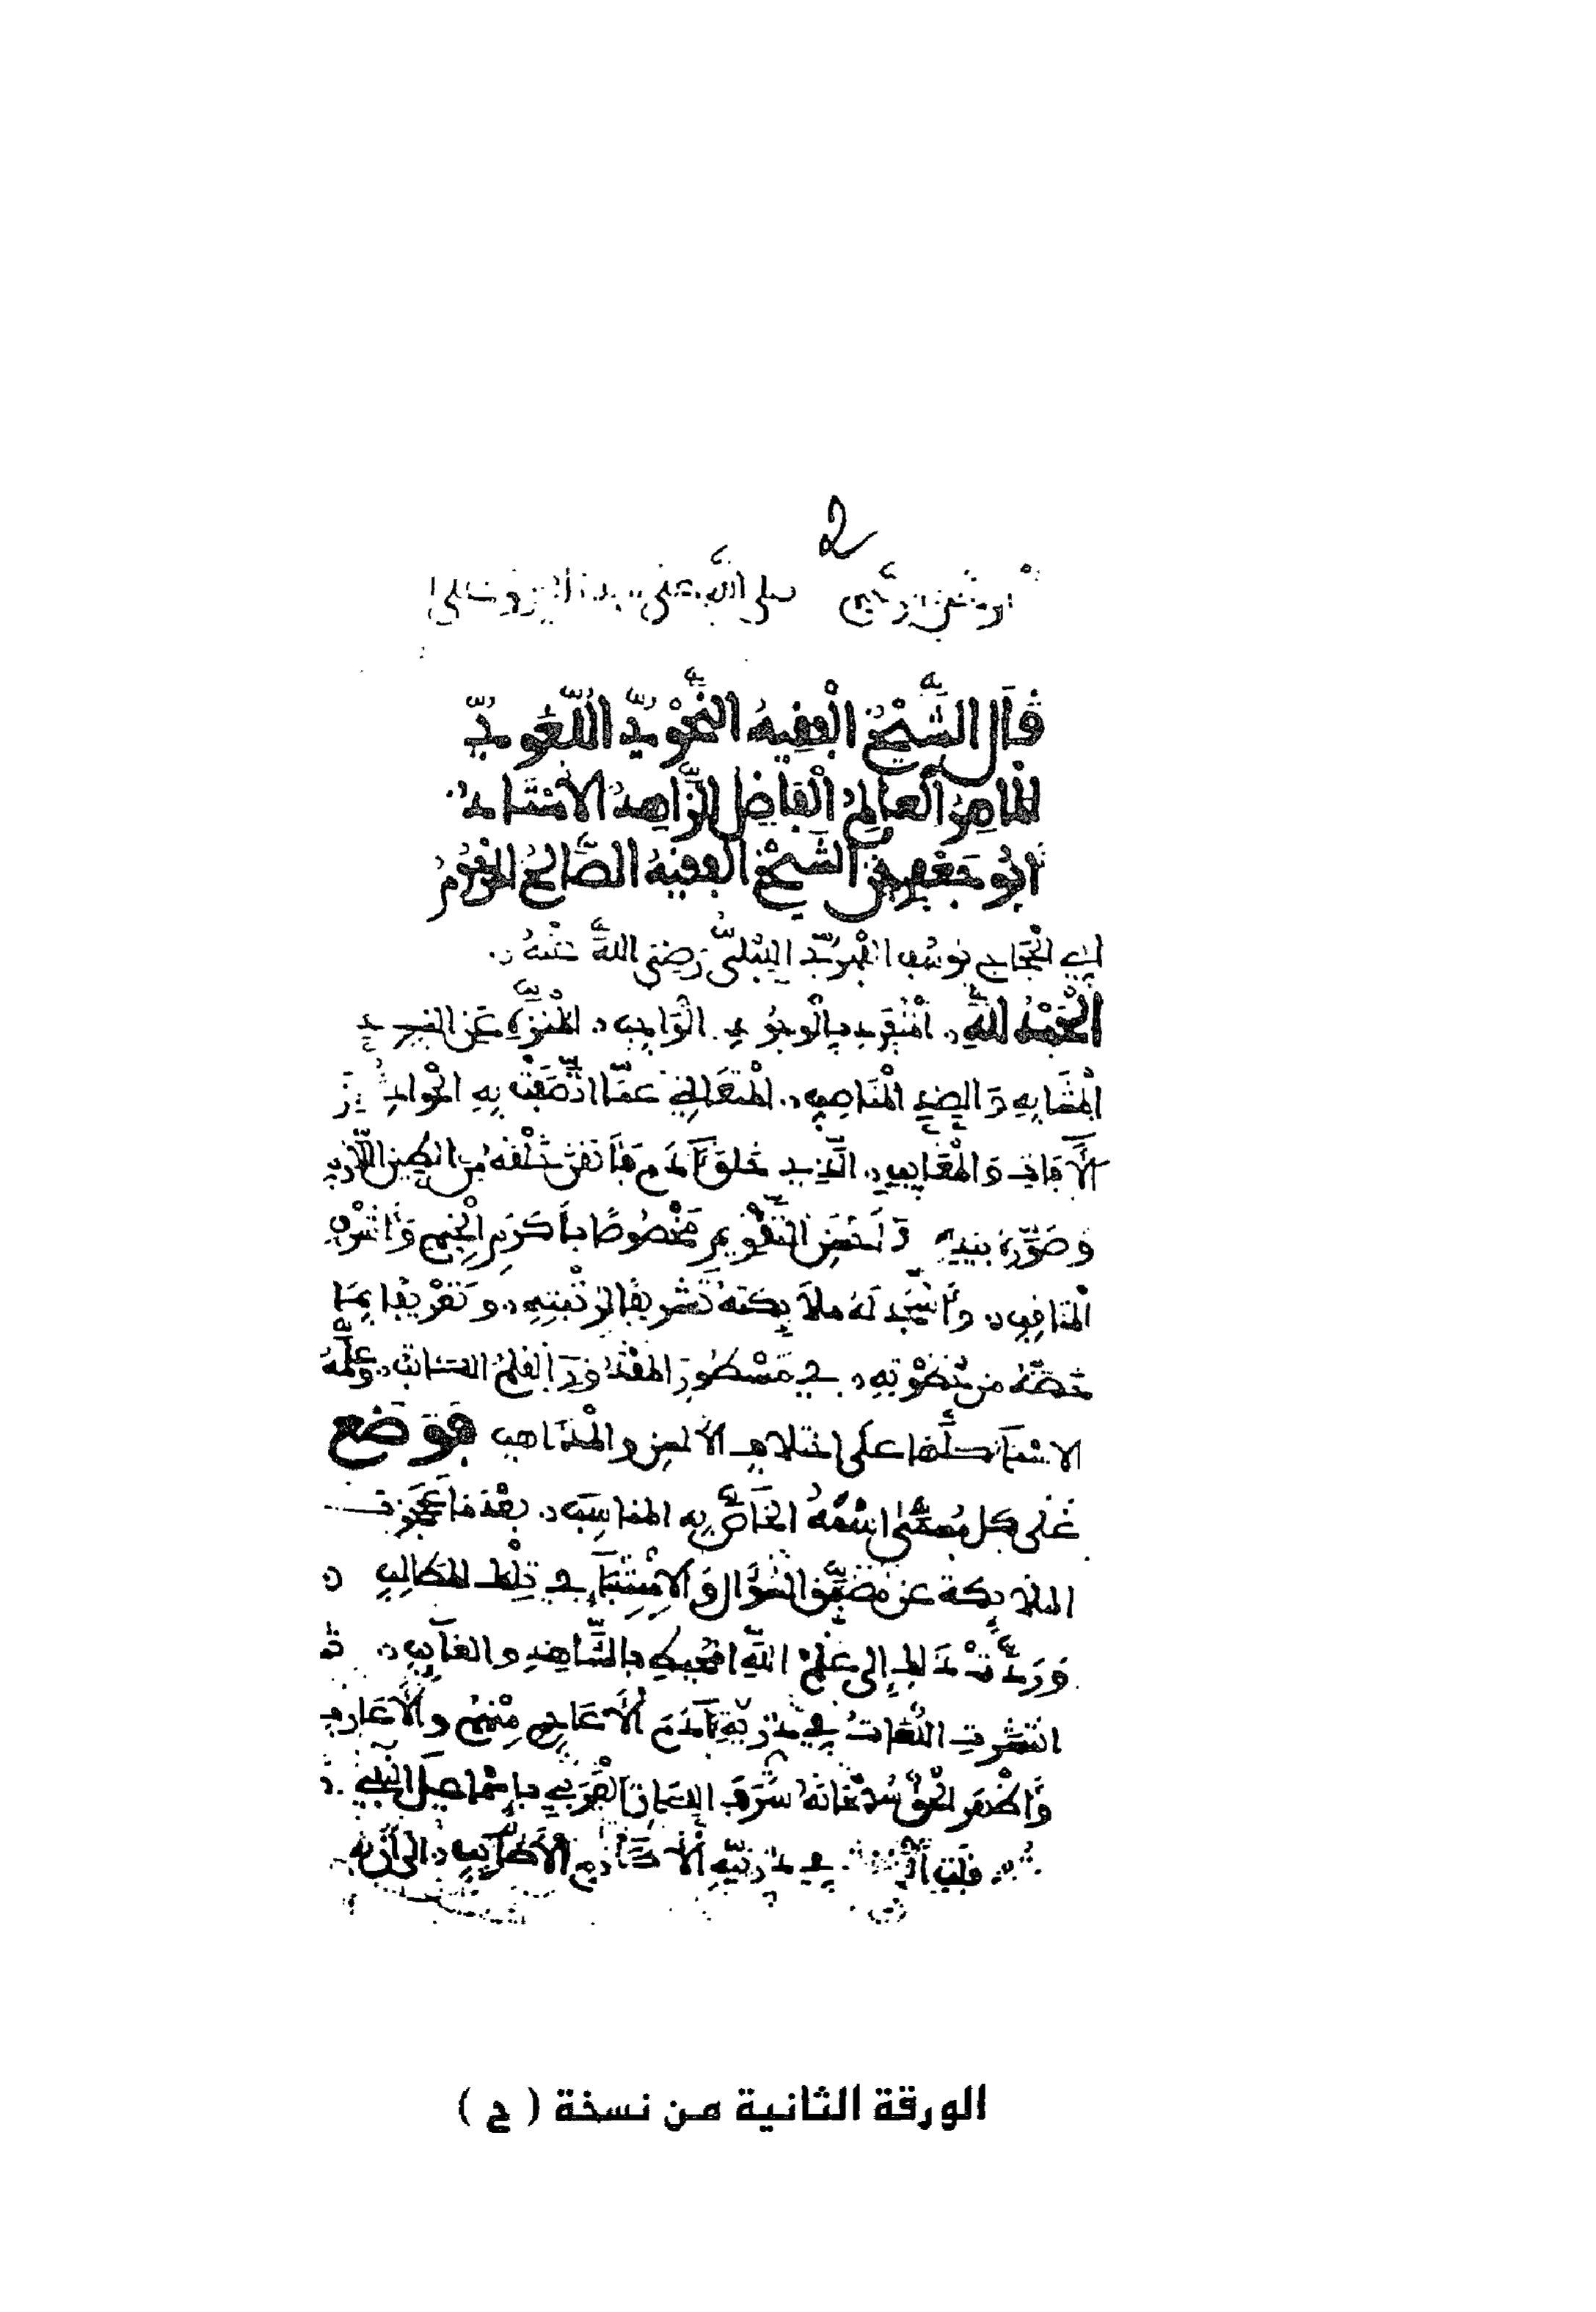 2
صلى الله على
قَالَ الشَّيْخُ الْفَقِيهُ النَّحْوِيُّ اللُّغَوِيُّ
الْمَاهِرُ الْعَالِمُ الْفَاضِلُ الزَّاهِدُ الْأُسْتَاذُ
أَبُو جَعْفَرٍ بْنُ الشَّيْخِ الْفَقِيهِ الصَّالِحِ الْمَرْحُومِ
أَبِي الْحَجَّاجِ يُوسُفَ الْفِهْرِيِّ اللَّبْلِيِّ رَضِيَ اللَّهُ عَنْهُ
الْحَمْدُ لِلَّهِ الْمُنْفَرِدِ بِالْوُجُودِ الْوَاجِبِ الْمُنَزَّهِ عَنِ
الْمُشَابِهِ وَالضِّدِّ الْمُنَاصِبِ الْمُتَعَالِي عَمَّا اتَّصَفَتْ بِهِ الْحَوَادِثُ
الْآفَاتِ وَالْمَعَايِبِ الَّذِي خَلَقَ آدَمَ فَأَتْقَنَ خَلْقَهُ مِنَ الطِّينِ اللَّازِبِ
وَصَوَّرَهُ بِيَدِهِ أَحْسَنِ التَّقْوِيمِ مَخْصُوصًا بِأَكْرَمِ الْخِيَمِ وَأَشْرَفِ
الْمَنَاقِبِ وَأَسْجَدَ لَهُ مَلَائِكَتَهُ تَشْرِيفًا لِرُتْبَتِهِ وَتَعْرِيفًا بِمَا
خَصَّهُ مِنْ حُظْوَتِهِ فِي مَسْطُورِ الْمَقْدُورِ الْقَلَمُ الْكَاتِبُ وَعَلَّمَهُ
الْأَسْمَاءَ كُلَّهَا عَلَى اخْتِلَافِ الْأَلْسُنِ وَالْمَذَاهِبِ فَوَضَعَ
عَلَى كُلِّ مُسَمًّى اسْمَهُ الْخَاصَّ بِهِ الْمُنَاسِبَ بَعْدَمَا عَجَزَتِ
الْمَلَائِكَةُ عَنْ السُّؤَالِ وَالْأَسْمَاءِ فِي تِلْكَ الْمَطَالِبِ
وَرَدَّتْ ذَلِكَ إِلَى عِلْمِ اللَّهِ الْمُحِيطِ بِالشَّاهِدِ وَالْغَائِبِ
انْتَشَرَتِ اللُّغَاتُ فِي ذُرِّيَّةِ آدَمَ الْأَعَاجِمِ مِنْهُمْ وَالْأَعَارِبِ
وَأَظْهَرَ الْحَقُّ سُبْحَانَهُ شَرَفَ اللِّسَانِ الْعَرَبِيِّ بِإِسْمَاعِيلَ النَّبِيِّ
فِي ذُرِّيَّتِهِ الْأَكَارِمِ الْأَطَايِبِ إِلَى أَنْ
الورقة الثانية من نسخة ( ح )